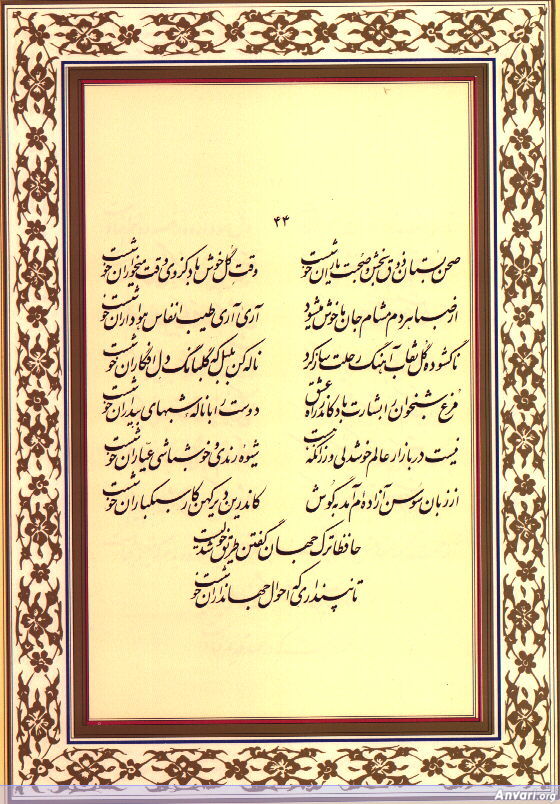 ۴۴
صحن بستان ذوق بخش و صحبت یاران خوشست وقت گل خوش باد کز وی وقت میخواران خوشست
از صبا هر دم مشام جان ما خوش میشود آری آری طیب انفاس هواداران خوشست
ناگشوده گل نقاب آهنگ رحلت ساز کرد ناله کن بلبل که گلبانگ دل افکاران خوشست
مرغ شبخوان را بشارت باد کاندر راه عشق دوست را با ناله شبهای بیداران خوشست
نیست در بازار عالم خوشدلی ور زانکه هست شیوه رندی و خوش باشی عیاران خوشست
از زبان سوسن آزاده ام آمد به گوش کاندرین دیر کهن کار سبکباران خوشست
حافظا ترک جهان گفتن طریق خوشدلیست
تا نپنداری که احوال جهانداران خوشست
Anvari.org